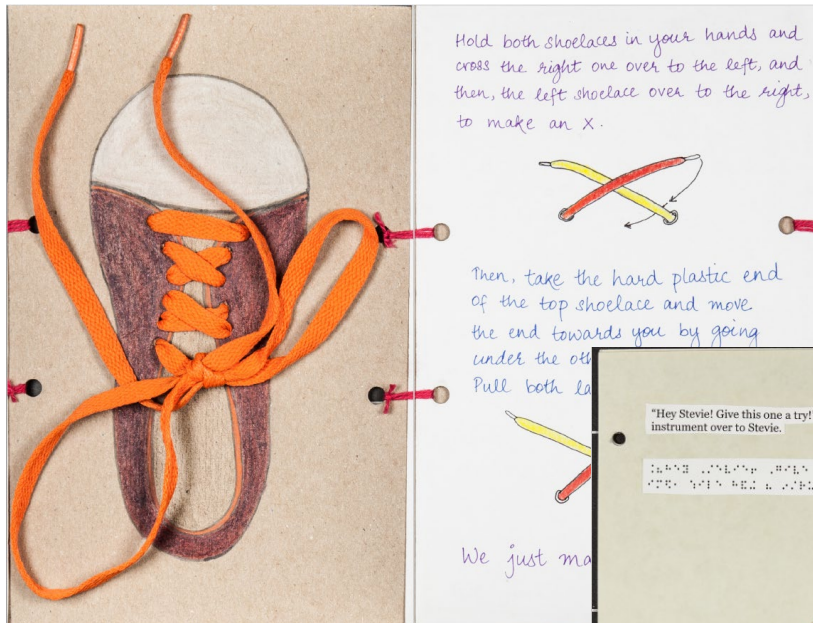 Hold both shoelaces in your hands and
cross the right one over to the left, and
then, the left shoelace over to the right,
to make an X.
Then, take the hard plastic end
of the top shoelace and move
the end towards you by going
under the
Pull both
We just
“Hey Stevie! Give this one a try!
instrument over to Stevie.